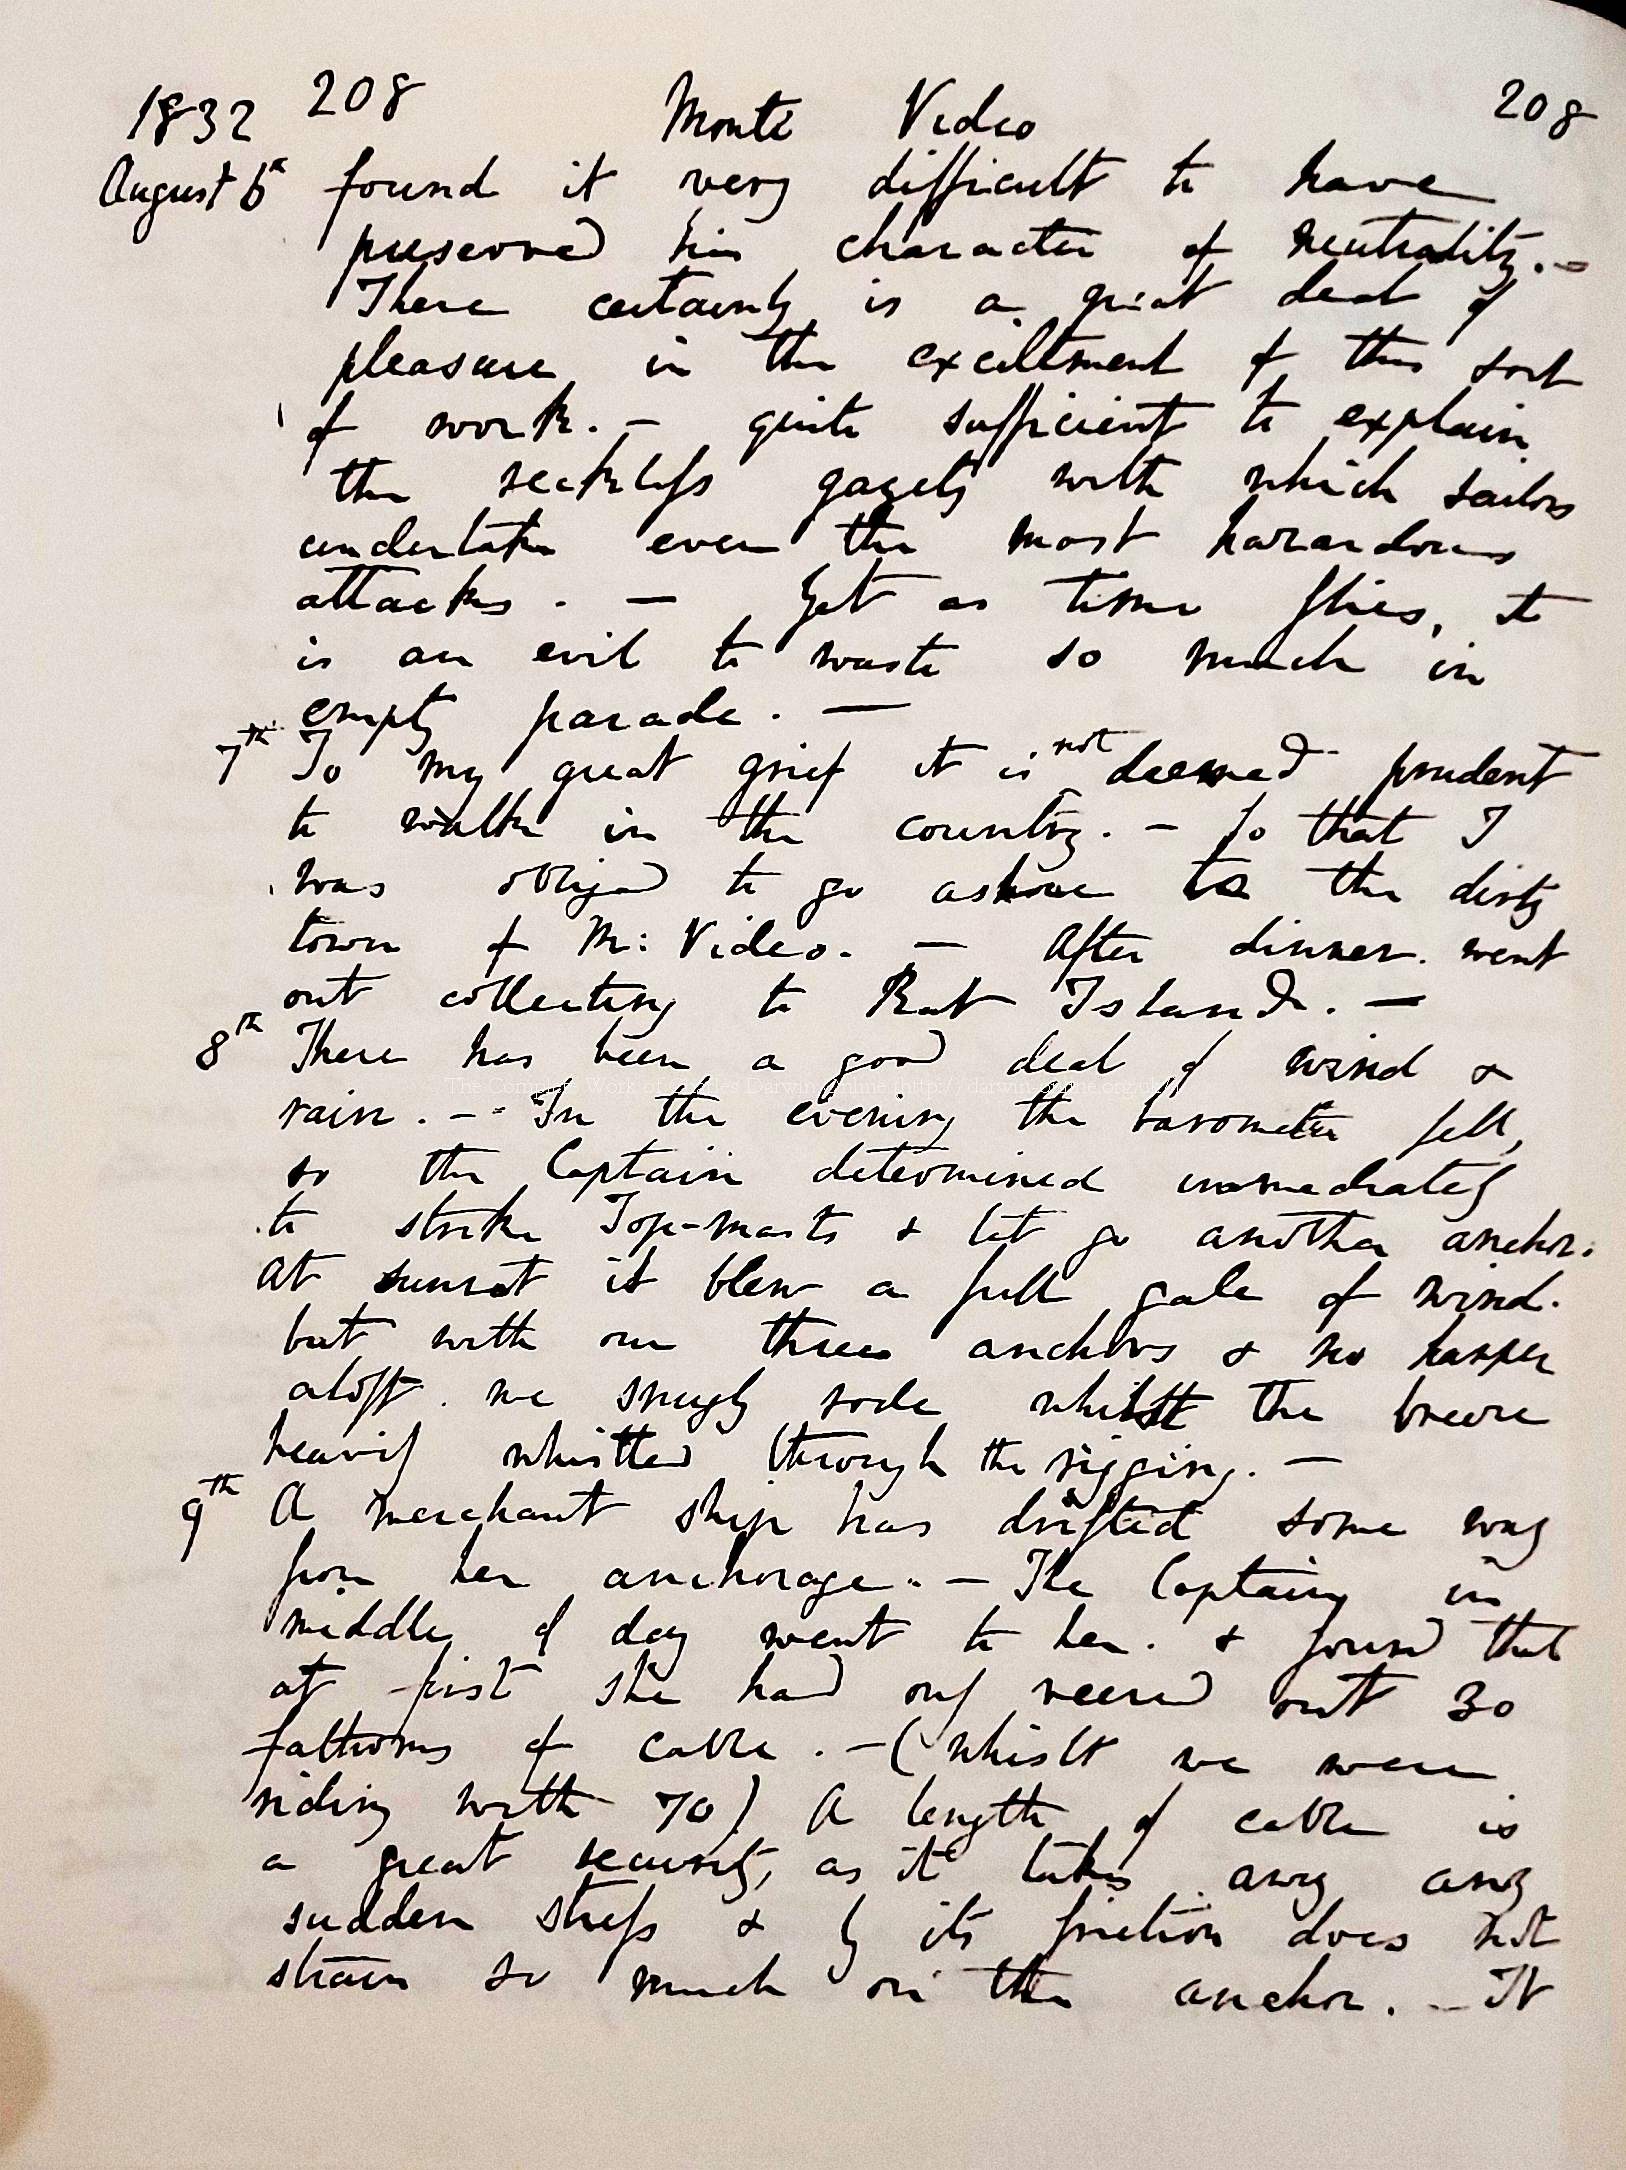 1832 208 Monte Video 208
August 6th found it very difficult to have
preserved his character of neutrality. —
There certainly is a great deal of
pleasure in the excitement of this sort
of work. — quite sufficient to explain
the reckless gayety with which sailors
undertake even the most hazardous
attacks. — Yet as time flies, it
is an evil to waste so much in
empty parade. —
7th To my great grief it is not deemed prudent
to walk in the country. — so that I
was obliged to go ashore to the dirty
town of M: Video. — After dinner went
out collecting to Rat Island. —
8th There has been a good deal of wind &
rain. — - In the evening the barometer fell,
so the Captain determined immediately
to strike Top-masts & let go another anchor.
At sunset it blew a full gale of wind.
but with our three anchors & no hamper
aloft. we snugly rode whilst the breeze
heavily whistled through the rigging. —
9th A merchant ship has drifted some way
from her anchorage. — The Captain in
middle of day went to her. & found that
at first she had only veered out 30
fathoms of cable. — (whilst we were
riding with 70) A length of cable is
a great security, as it takes away any
sudden stress & by its friction does not
strain so much on the anchor. — It